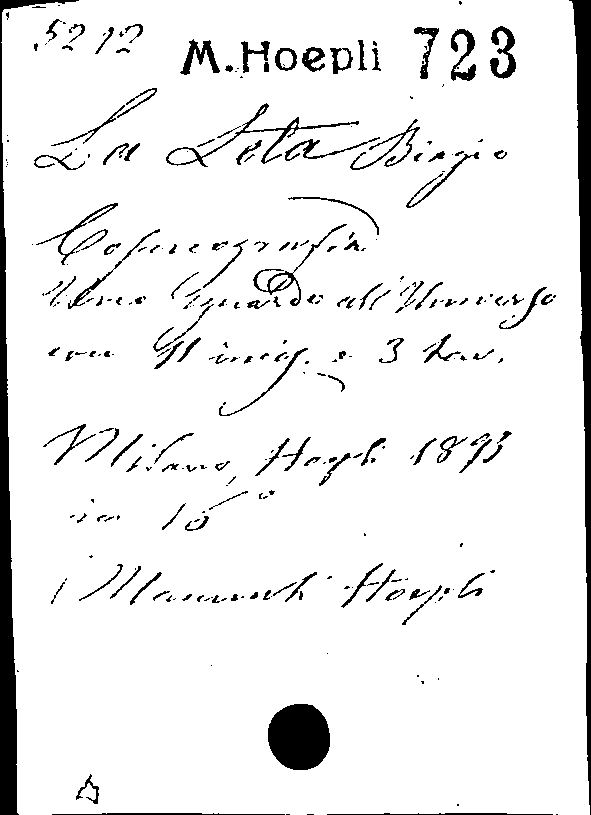 5212 M. Hoepli 723
La Leta Biagio
Cosmografia
Uno sguardo all'Universo
con 11 incis. e 3 tav.
Milano, Hoepli 1893
in 16°
Manuali Hoepli